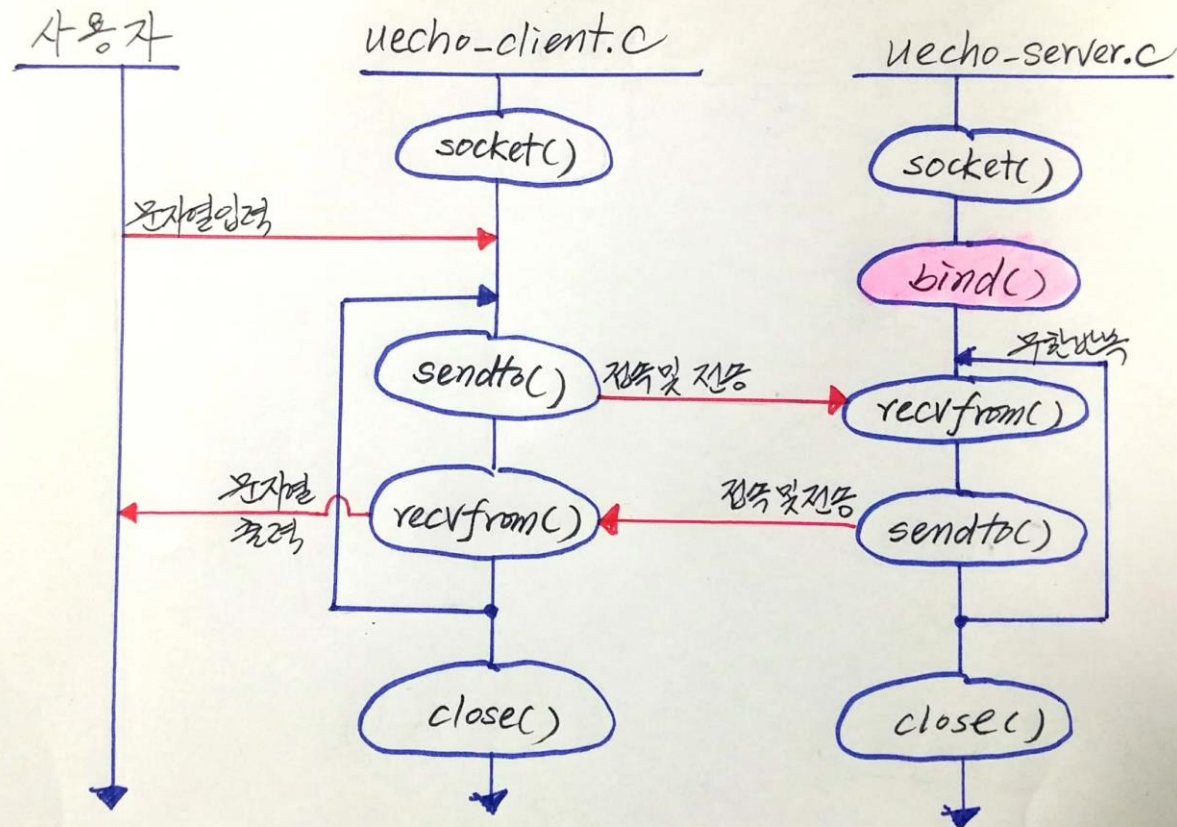 사용자
uecho_client.c
uecho_server.c
socket()
socket()
문자열입력
bind()
무한반복
sendto()
접속및 전송
recvfrom()
문자열
출력
recvfrom()
접속및전송
sendto()
close()
close()